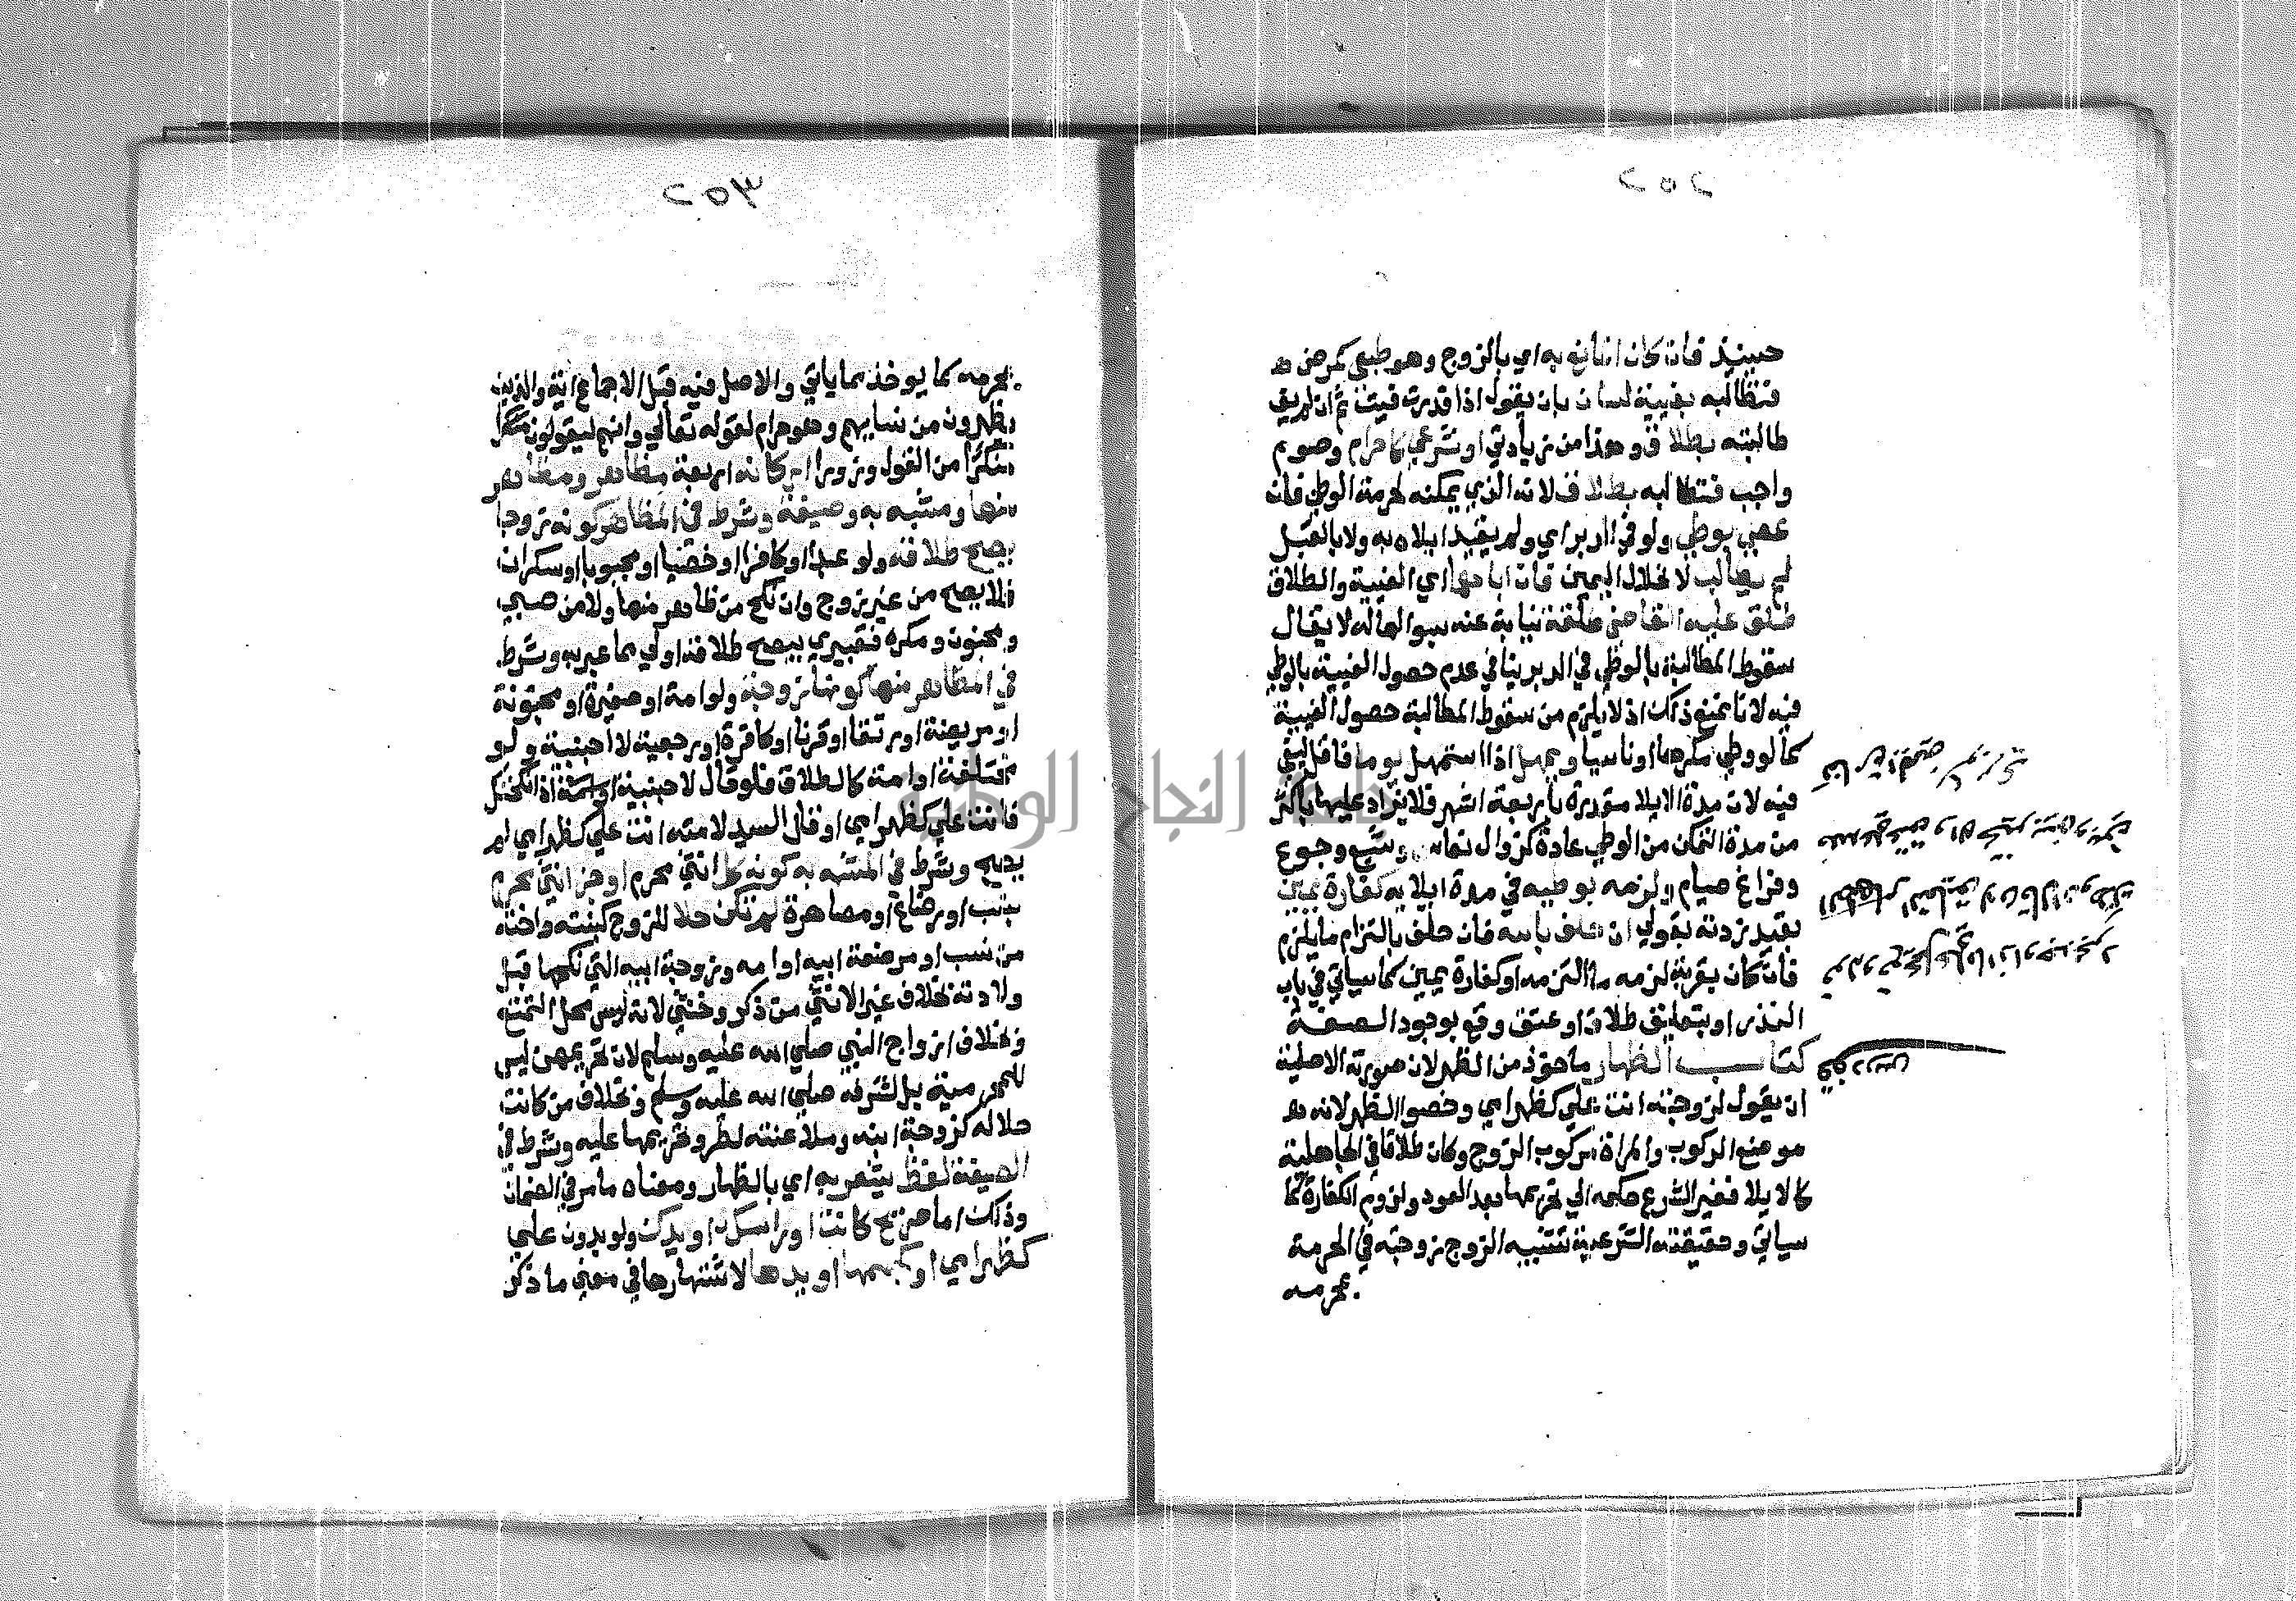 ٢٥٢
حينيذ فان كان المانع به اي بالزوج وهو طبعي كمرض
فتطالبه بفيية لسان بان يقول اذا قدرت فيت ثم ان لم يف
طالبته بطلاق وهذا من زيادتي او شرعي كاحرام وصوم
واجب فتطالبه بطلاق لانه الذي يمكنه لحرمة الوطي فان
عصي بوطي ولو في الدبر اي ولم يقيد ايلاه به ولا بالقبل
لم يطالب لانحلال اليمين فان اباهما اي الفيية والطلاق
طلق عليه القاضي طلقة نيابة عنه بسوالها له لا يقال
سقوط المطالبة بالوطي في الدبر ينافي عدم حصول الفيية بالوطي
فيه لانا نمنع ذلك اذ لا يلزم من سقوط المطالبة حصول الفيية
كما لو وطي مكرها او ناسيا ويمهل اذا استمهل يوما فاقل ليفي
فيه لان مدة الايلا مقدرة باربعة اشهر فلا يزاد عليها باكثر
من مدة التمكن من الوطي عادة كزوال نعاس وشبع وجوع
وفراغ صيام ولزمه بوطيه في مدة ايلايه كفارة يمين
بقيد زدته بقولي ان حلف بالله فان حلف بالتزام ما يلزم
فان كان بقربة لزمه ما التزمه او كفارة يمين كما سياتي في باب
النذر او بتعليق طلاق او عتق وقع بوجود الصفة
كتاب الظهار ماخوذ من الظهر لان صورته الاصلية
ان يقول لزوجته انت علي كظهر امي وخصوا الظهر لانه
موضع الركوب والمراة مركوب الزوج وكان طلاقا في الجاهلية
كالايلا فغير الشرع حكمه الي تحريمها بعد العود ولزوم الكفارة كما
سياتي وحقيقته الشرعية تشبيه الزوج زوجته في الحرمة
بمحرمه
٢٥٣
بمحرمه كما يوخذ مما ياتي والاصل فيه قبل الاجماع اية والذين
يظهرون من نسايهم وهو حرام لقوله تعالي وانهم ليقولون
منكرا من القول وزورا اركانه اربعة مظاهر ومظاهر
منها ومشبه به وصيغة وشرط في المظاهر كونه زوجا
يصح طلاقه ولو عبدا او كافرا او خصيا او مجبوبا او سكران
فلا يصح من غير زوج وان نكح من ظاهر منها ولا من صبي
ومجنون ومكره فتعبيري بيصح طلاقه اولي مما عبر به وشرط
في المظاهر منها كونها زوجة ولو امة او صغيرة او مجنونة
او مريضة او رتقا او قرنا او كافرة او رجعية لا اجنبية ولو
مختلعة او امة كالطلاق فلو قال لاجنبية اذا نكحتك
فانت علي كظهر امي او قال السيد لامته انت علي كظهر امي لم
يصح وشرط في المشبه به كونه كل انثي محرم او جزء انثي محرم
بنسب او رضاع او مصاهرة لم تكن حلا للزوج كبنته واخته
من نسب او مرضعة ابيه او امه وزوجة ابيه التي نكحها قبل
ولادته بخلاف غير الانثي من ذكر وخنثي لانه ليس محل التمتع
وبخلاف ازواج النبي صلي الله عليه وسلم لان تحريمهن ليس
للمحرمية بل لشرفه صلي الله عليه وسلم وبخلاف من كانت
حلاله كزوجة ابنه وملاعنته لطرو تحريمها عليه وشرط في
الصيغة لفظ يشعر به اي بالظهار ومعناه ما مر في الضمان
وذلك اما صريح كانت او راسك او يدك ولو بدون علي
كظهر امي او كجسمها او يدها لاشتهارها في معني ما ذكر
جامعة النجاح الوطنية